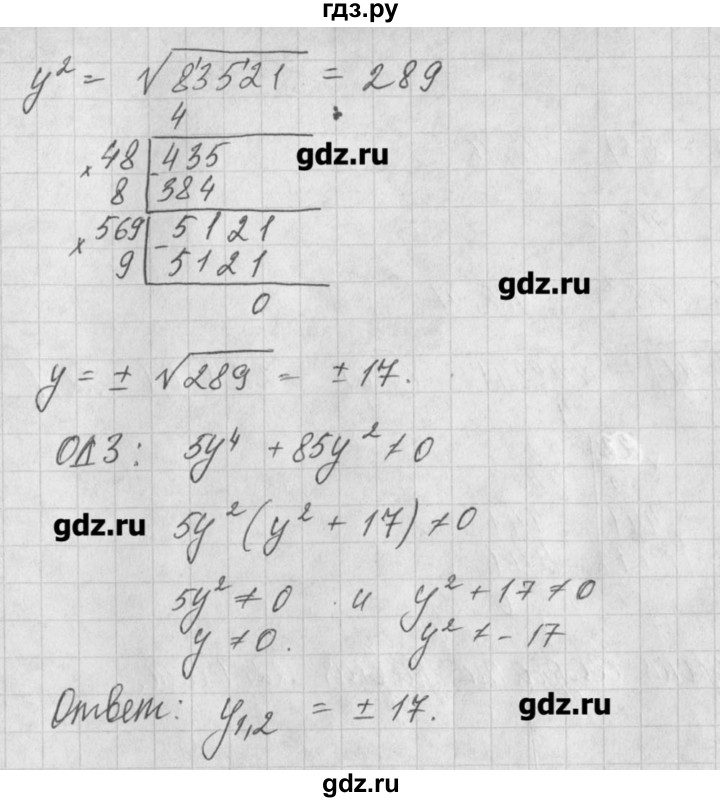 гдз.ру
y² = √83521 = 289
4
× 48 | 435
8 | 384
gdz.ru
× 569 | 5121
9 | 5121
gdz.ru
0
y = ± √289 = ± 17.
ОДЗ: 5y⁴ + 85y² ≠ 0
gdz.ru
5y² (y² + 17) ≠ 0
5y² ≠ 0 и y² + 17 ≠ 0
y ≠ 0. y² ≠ - 17
Ответ: y₁,₂ = ± 17.
gdz.ru
gdz.ru